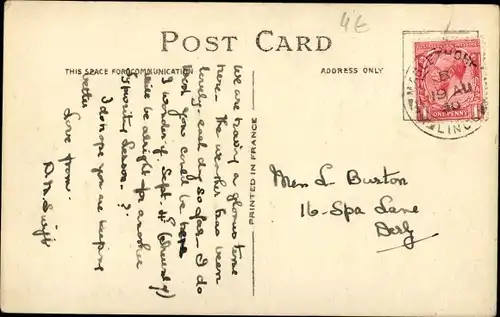 4E
POST CARD
THIS SPACE FOR COMMUNICATION
ADDRESS ONLY
We are having a glorious time
here. The weather has been
lovely - each day so far - I do
wish you could be here
I wonder if Sept. 4 (Wednesday)
will be alright for another
lesson - ?
I do hope you are keeping
better
Love from
PRINTED IN FRANCE
Mrs L. Burton
16 - Spa Lane
Derby
MABLETHORPE
19 AU
30
LINCS
ONE PENNY